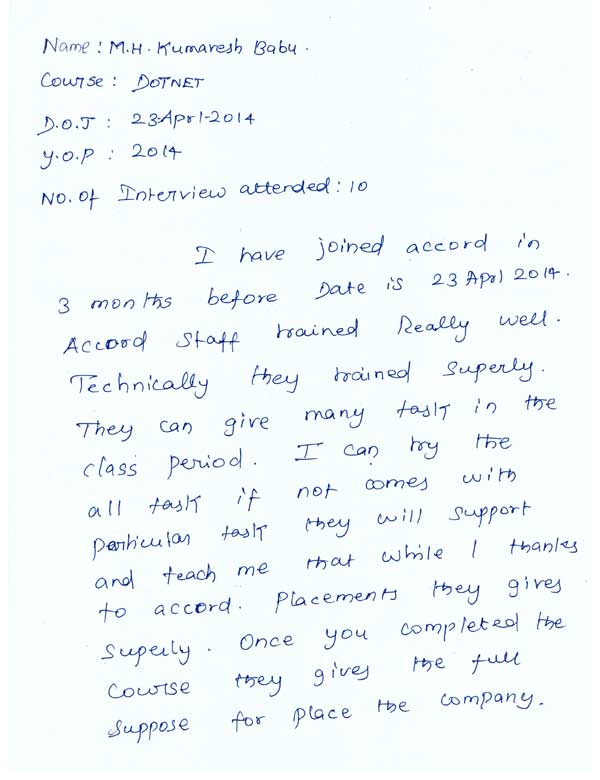 Name : M.H. Kumaresh Babu.
Course : DOTNET
D.O.J : 23-Apr1-2014
Y.O.P : 2014
NO. Of Interview attended : 10
I have joined accord in
3 months before Date is 23 Aprl 2014.
Accord Staff trained Really well.
Technically they trained Superly.
They can give many task in the
class period. I can try the
all task if not comes with
particular task they will support
and teach me that while I thanks
to accord. Placements they gives
Superly. Once you completed the
Course they gives the full
suppose for place the company.